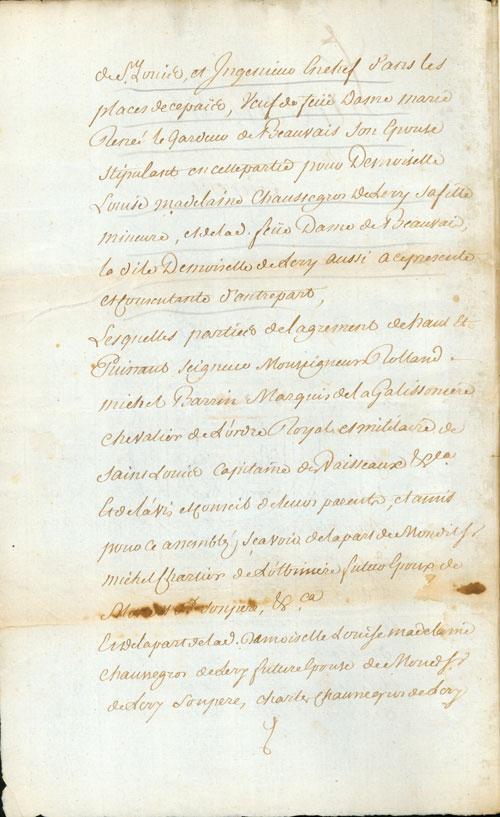 de St. Louis, et Ingenieur Enchef d'ans les
places de ce païs, Veuf de feüe Dame marie
Reneé le Gardeur de Beauvais Son Epouse
Stipulant en cette partie pour Demoiselle
Louise madelaine Chaussegros de Lery Sa fille
mineure, et de lad. feüe Dame de Beauvais,
la dite Demoiselle de Lery aussi a ce presente
et consentante d'autrepart,
Lesquelles parties de lagrement de haut Et
Puissant Seigneur Monseigneur Rolland
michel Barrin Marquis de la Galissonière
chevalier de L'ordre Royal et militaire de
Saint Louis Capitaine de Vaisseaux &ca
Et de lávis et conseil de leurs parents, et amis
pour ce assemblés, Sçavoir de la part de Mondit Sr.
michel Chartier de Lotbiniére futur Epoux de
Son pere, &ca
Et de la part de lad. Damoiselle Louise madelaine
chaussegros de Lery future Epouse de Mond. Sr.
de Lery Son pere, charles Chaussegros de Lery